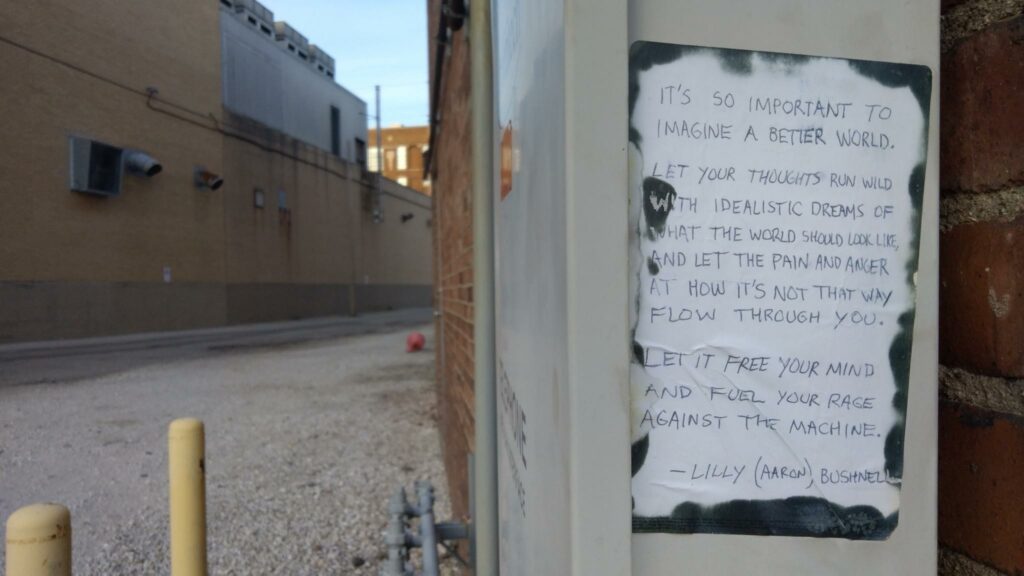 IT'S SO IMPORTANT TO
IMAGINE A BETTER WORLD.
LET YOUR THOUGHTS RUN WILD
WITH IDEALISTIC DREAMS OF
WHAT THE WORLD SHOULD LOOK LIKE,
AND LET THE PAIN AND ANGER
AT HOW IT'S NOT THAT WAY
FLOW THROUGH YOU.
LET IT FREE YOUR MIND
AND FUEL YOUR RAGE
AGAINST THE MACHINE.
- LILLY (AARON) BUSHNELL